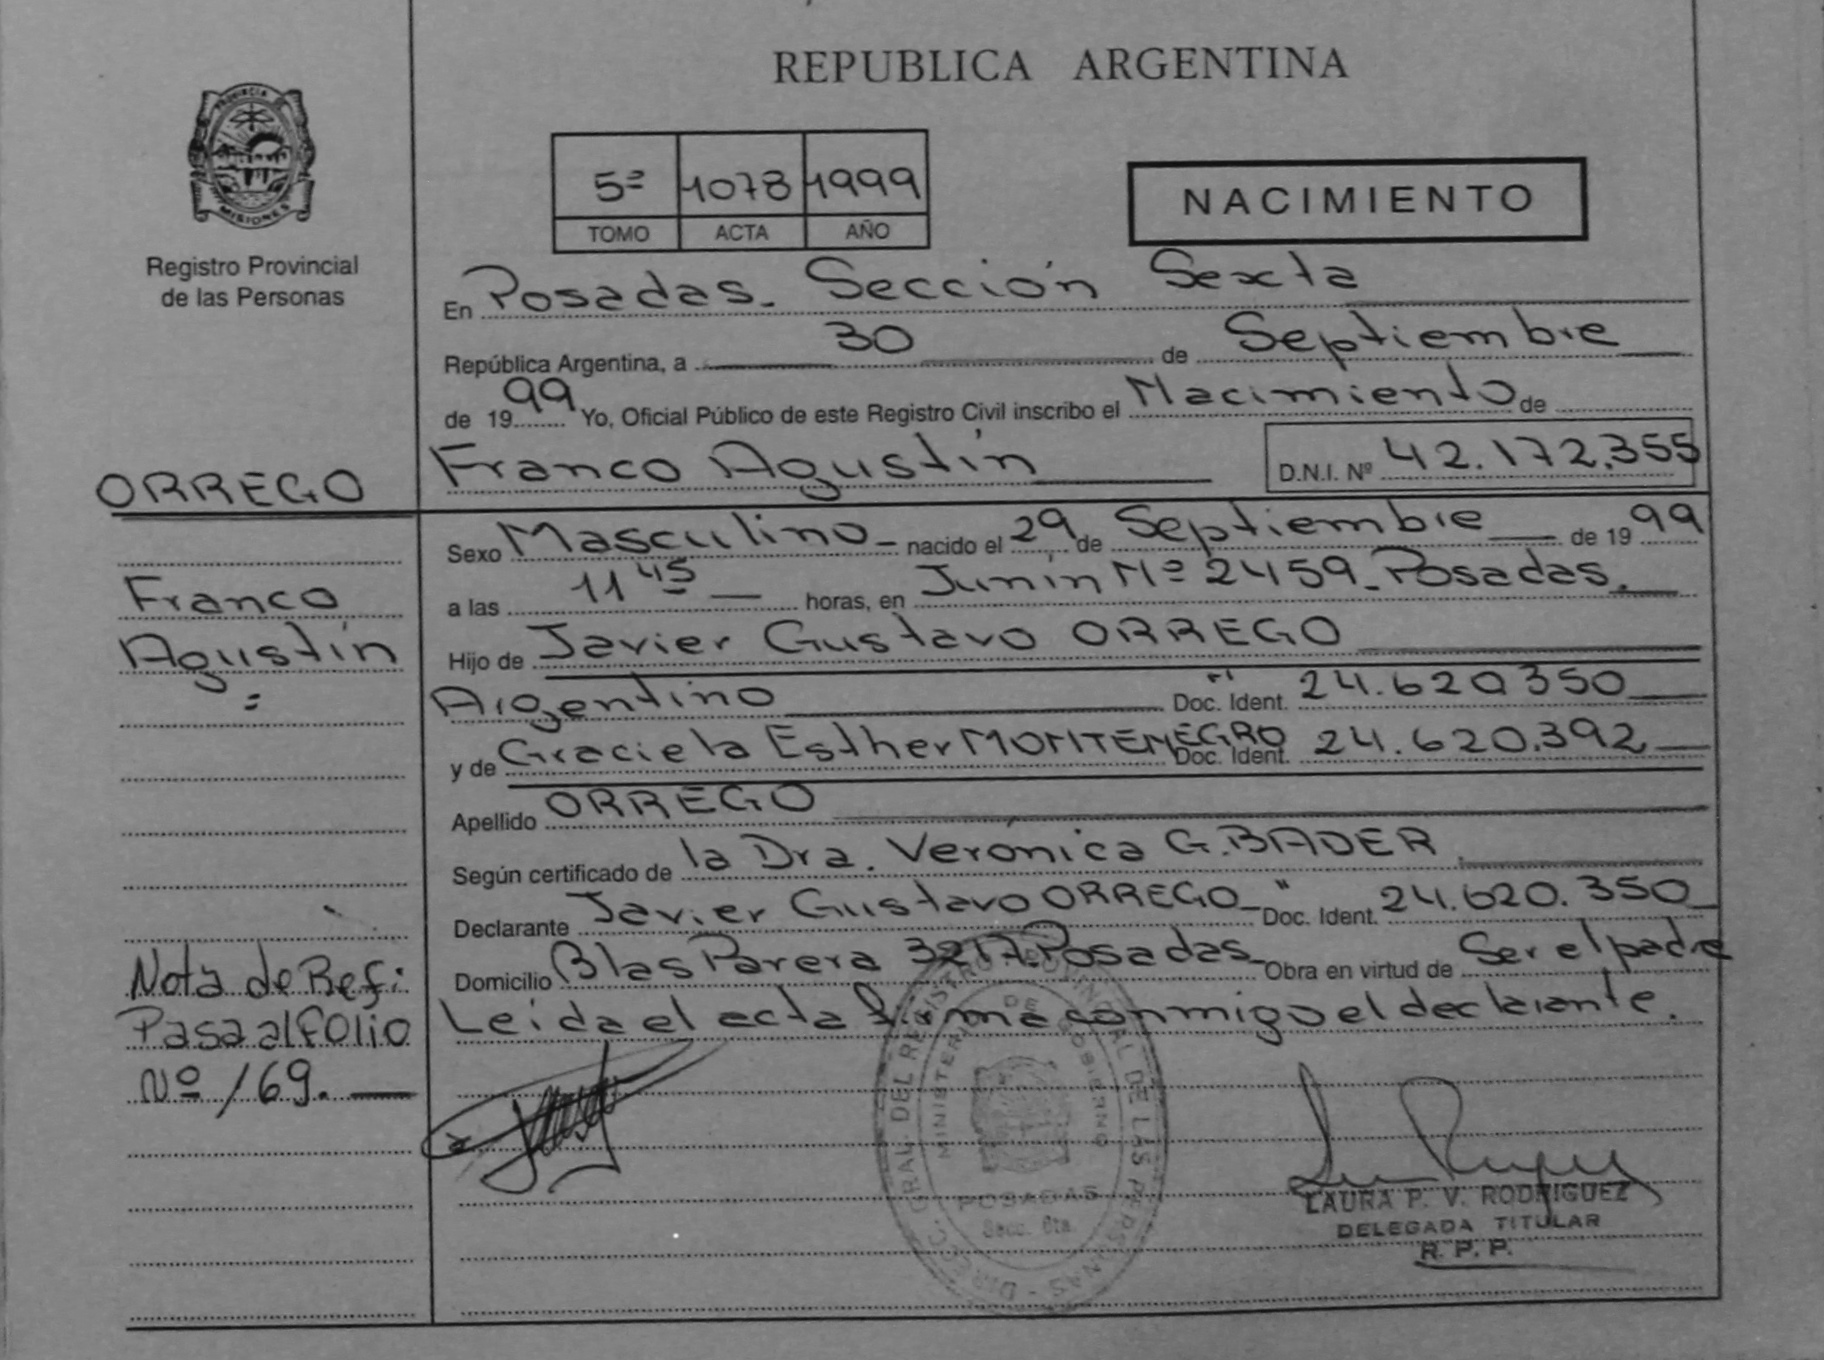 REPUBLICA ARGENTINA
PROVINCIA DE
MISIONES
Registro Provincial
de las Personas
5º 1078 1999
TOMO ACTA AÑO
NACIMIENTO
En Posadas. Sección Sexta
República Argentina, a 30 de Septiembre
de 1999 Yo, Oficial Público de este Registro Civil inscribo el Nacimiento de
Franco Agustín D.N.I. Nº 42.172.355
ORREGO
Franco
Agustín
Sexo Masculino nacido el 29 de Septiembre de 1999
a las 11 45 horas, en Junín Nº 2459 Posadas.
Hijo de Javier Gustavo ORREGO
Argentino Doc. Ident. 24.620350
y de Graciela Esther MONTENEGRO Doc. Ident. 24.620.392
Apellido ORREGO
Según certificado de la Dra. Verónica G. BADER
Declarante Javier Gustavo ORREGO Doc. Ident. 24.620.350
Domicilio Blas Parera 3217. Posadas Obra en virtud de Ser el padre
Leida el acta firma conmigo el declarante.
Nota de Ref:
Pasa al folio
Nº /69.
DIREC. GRAL. DEL REGISTRO PROVINCIAL DE LAS PERSONAS
MINISTERIO DE GOBIERNO
POSADAS
Secc. 6ta.
LAURA P. V. RODRIGUEZ
DELEGADA TITULAR
R. P. P.